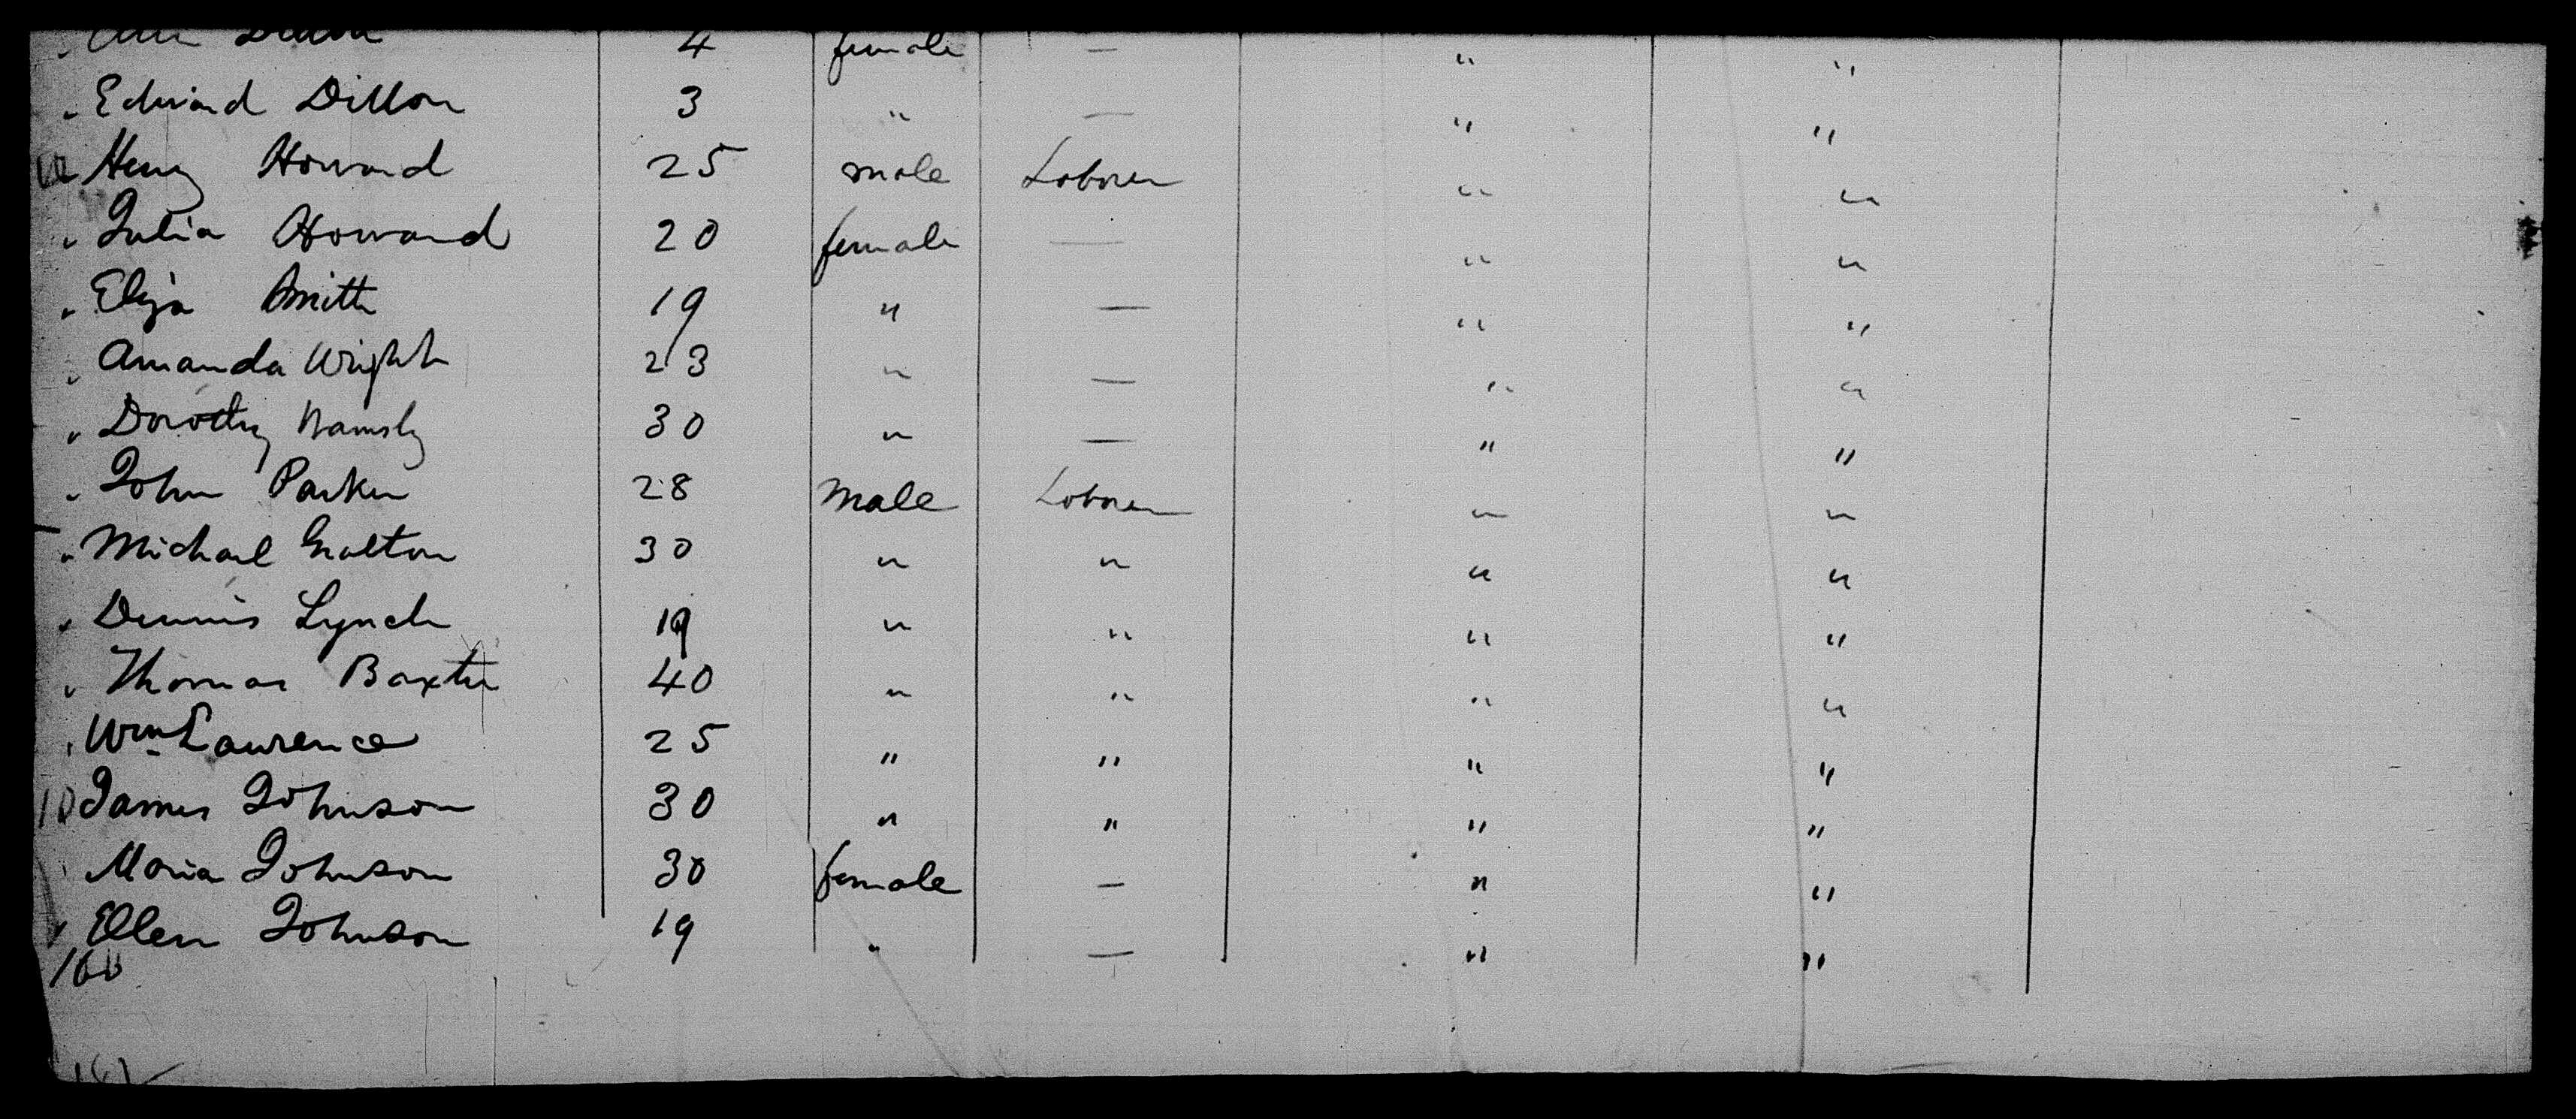 Dillon 4 female — " "
" Edward Dillon 3 " — " "
Henry Howard 25 male Laborer " "
" Julia Howard 20 female — " "
" Eliza Smith 19 " — " "
" Amanda Wright 23 " — " "
" Dorothy 30 " — " "
" John Parker 28 male Laborer " "
" Michael 30 " " " "
" Dennis Lynch 19 " " " "
" Thomas Baxter 40 " " " "
" Wm Lawrence 25 " " " "
James Johnson 30 " " " "
" Maria Johnson 30 female — " "
" Ellen Johnson 19 " — " "
160